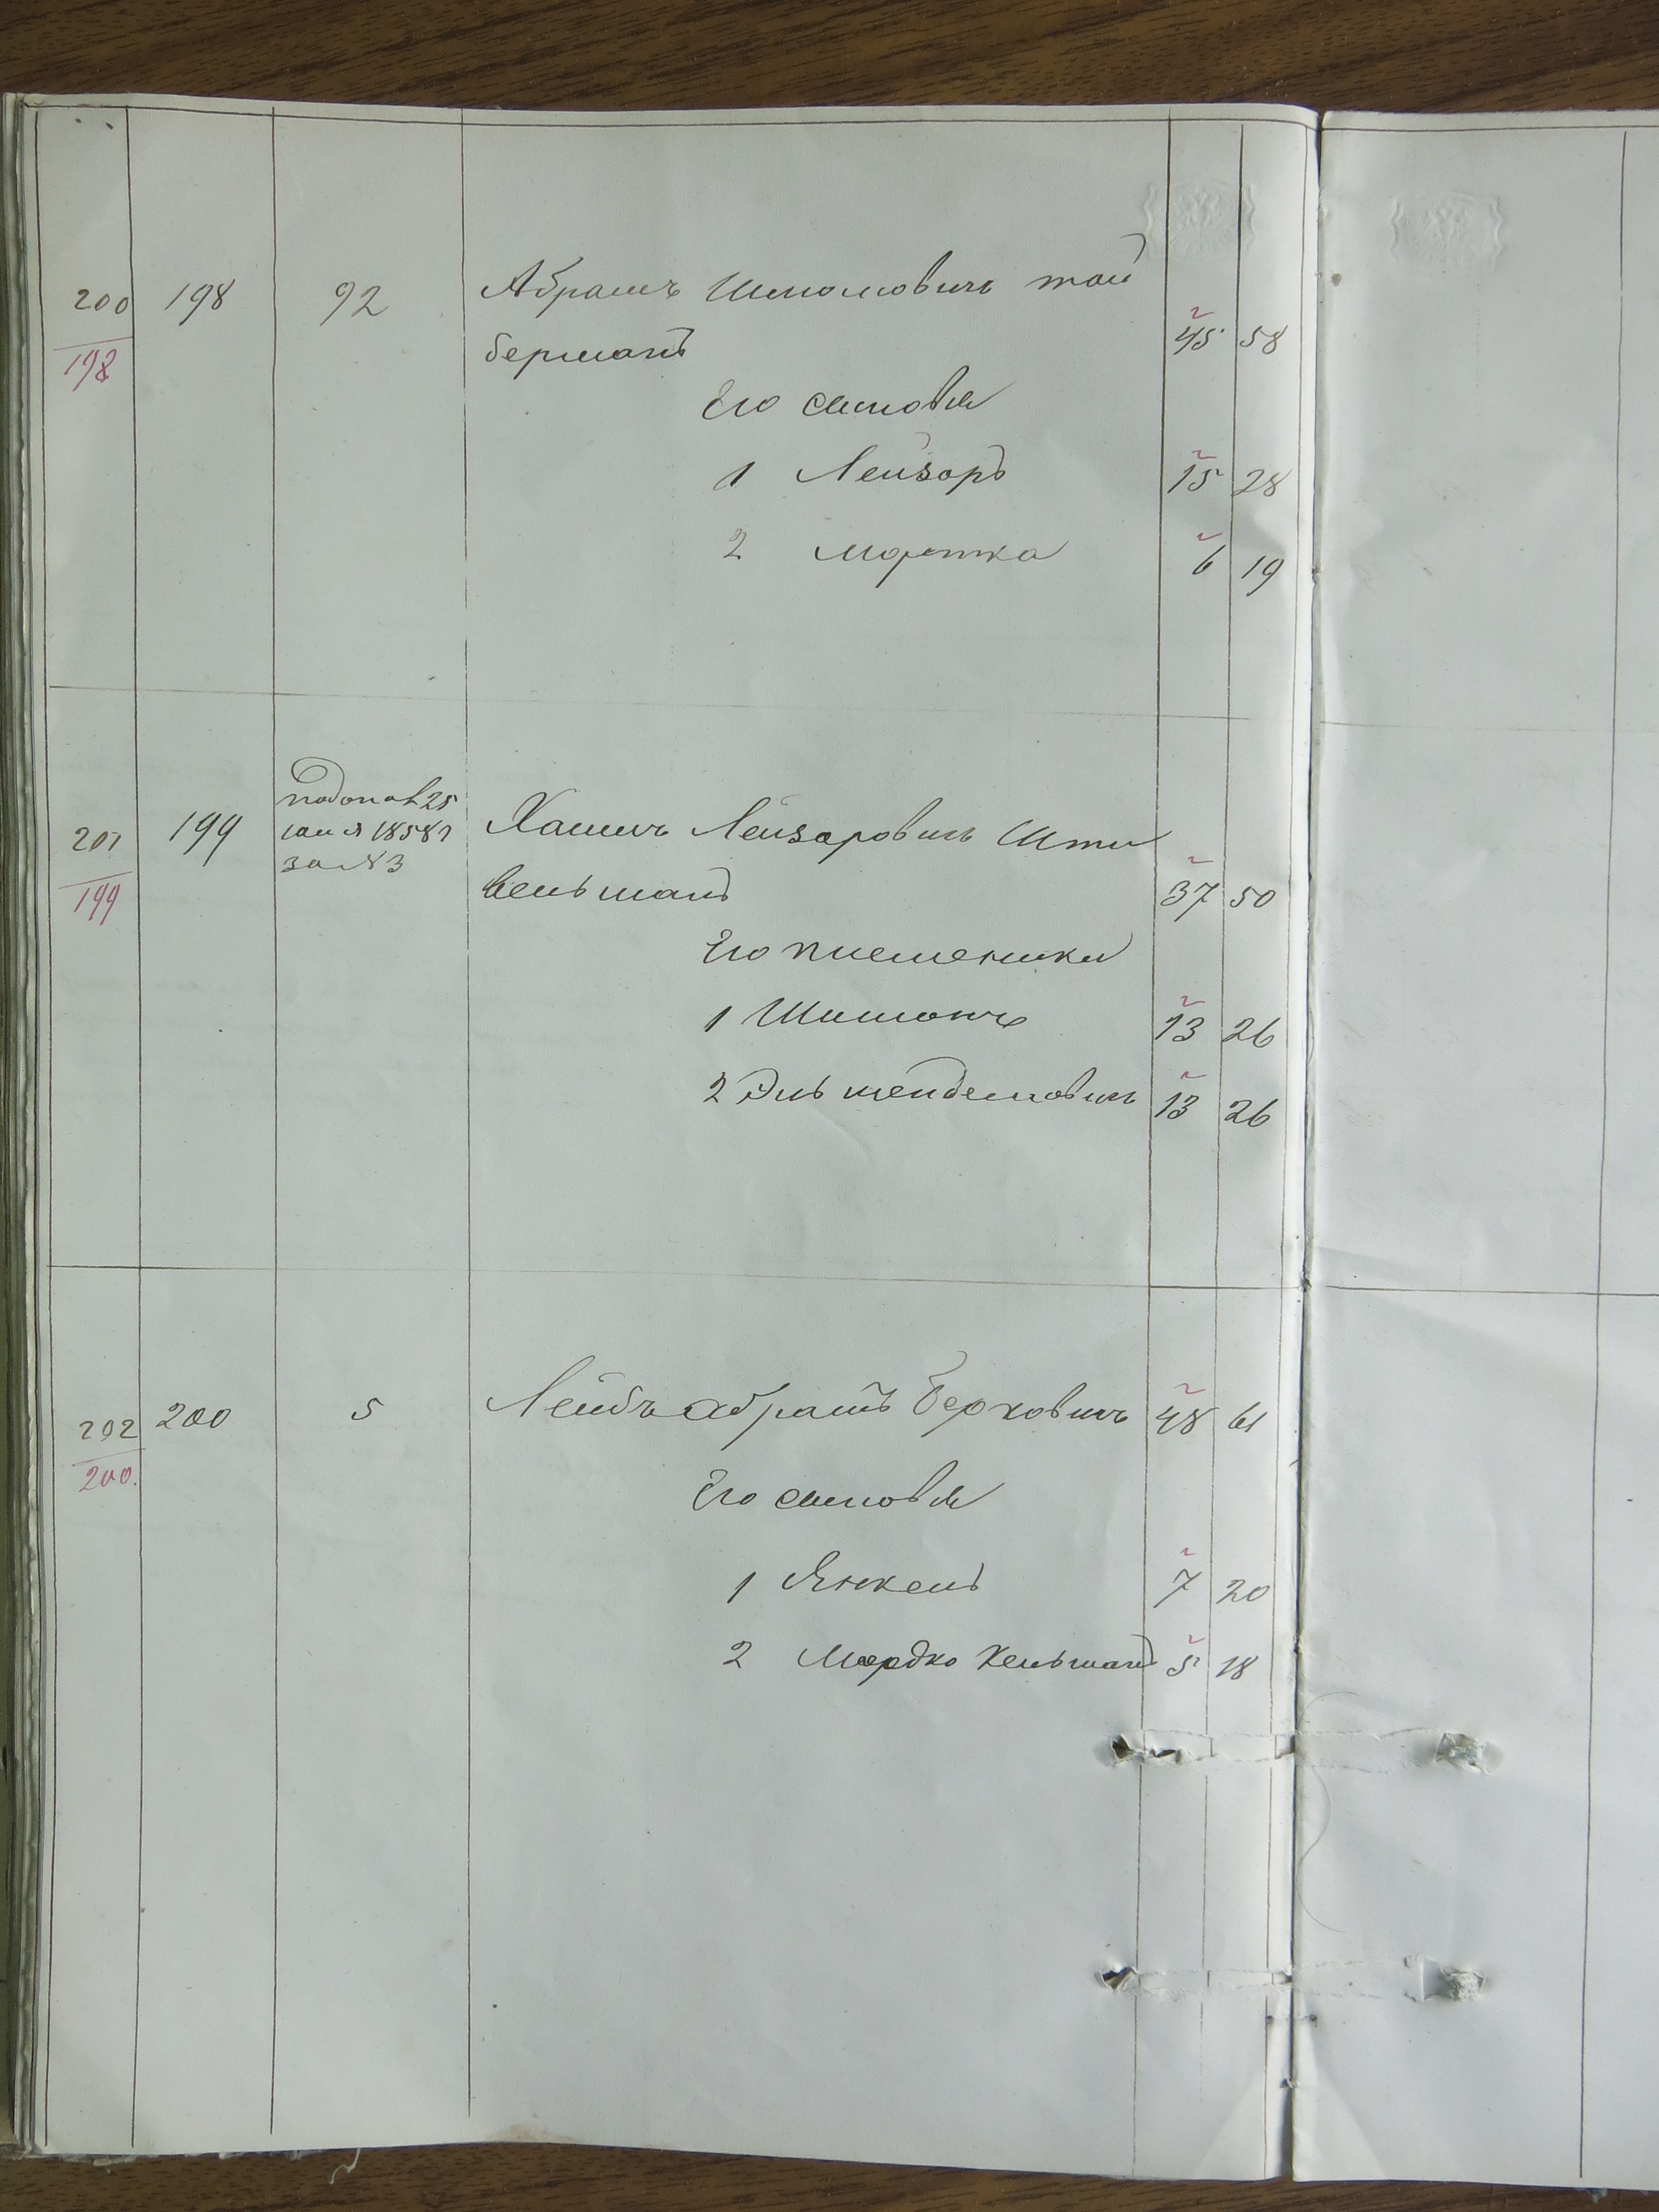 200 198 92 Абрамъ Шмоиовичъ той
198 берманъ 45 58
Его сыновья
1 Лейзоръ 15 28
2 Мортка 6 19
201 199 подопол 25 мая 1858 г за № 3 Хаимъ Лейзоровичъ Шти
199 вельманъ 37 50
Его племеники
1 Шимонъ 13 26
2 Эль мендемовичъ 13 26
202 200 5 Лейбъ абрамъ Берковичъ 48 61
200.
Его сыновья
1 Янкель 7 20
2 Мордко Кельманъ 5 18